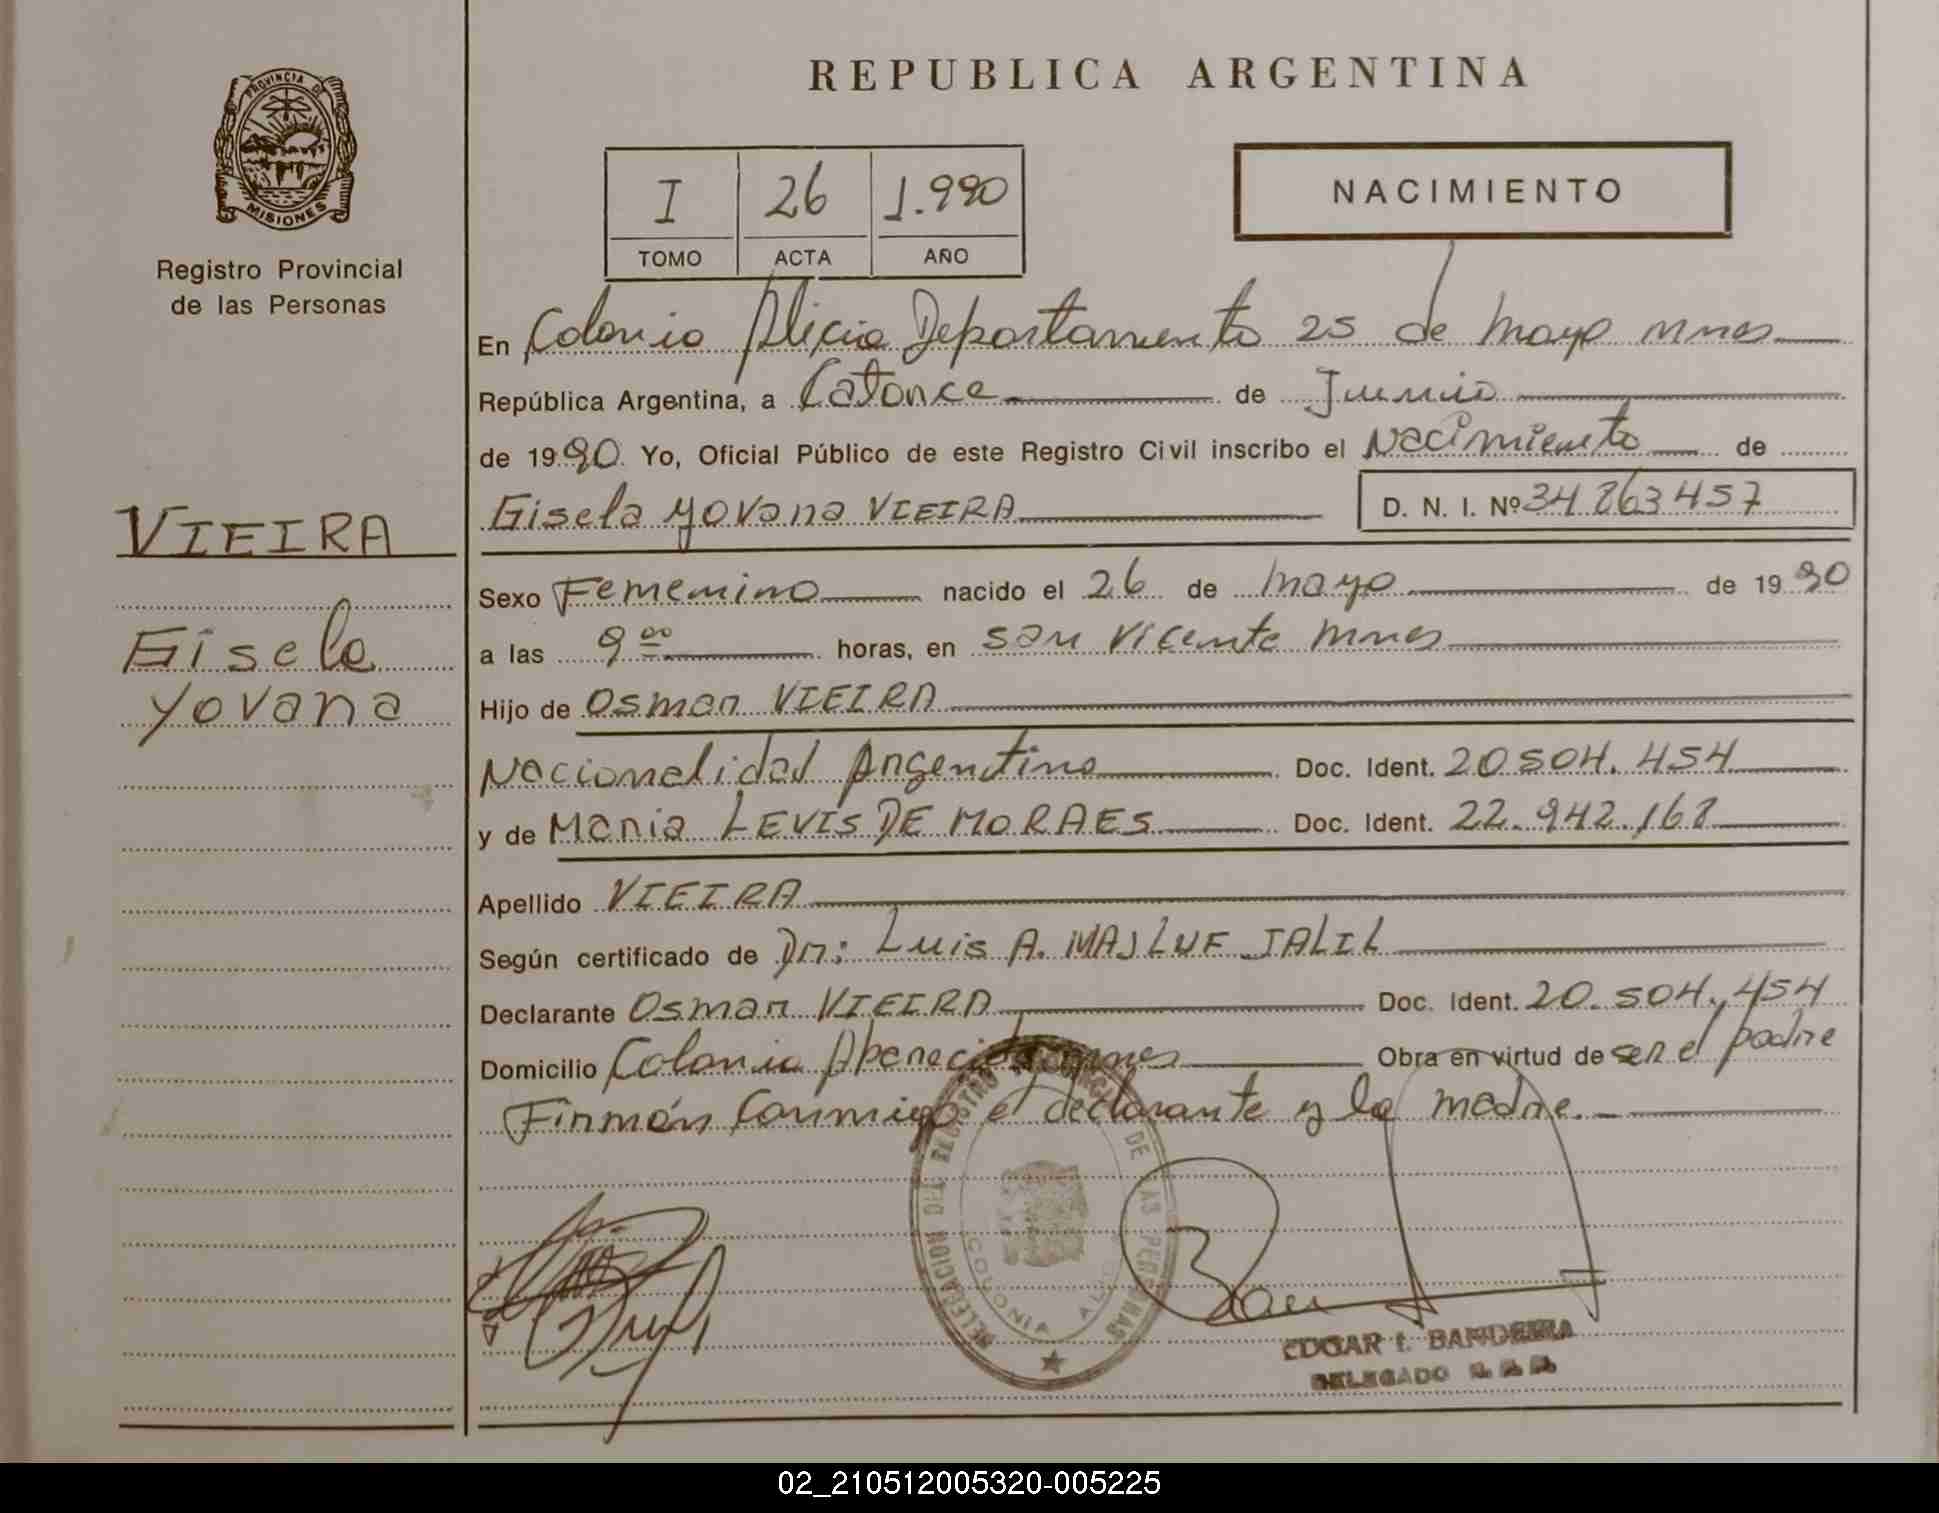 PROVINCIA DE
MISIONES
Registro Provincial
de las Personas
VIEIRA
Gisela
Yovana
REPUBLICA ARGENTINA
I 26 1.990
TOMO ACTA AÑO
NACIMIENTO
En Colonia Alicia Departamento 25 de Mayo Mnes
República Argentina, a Catorce de Junnio
de 1990. Yo, Oficial Público de este Registro Civil inscribo el Nacimiento de
Gisela Yovana VIEIRA D. N. I. Nº 34 863 457
Sexo Femenino nacido el 26 de Mayo de 1990
a las 9 00 horas, en San Vicente Mnes
Hijo de Osmar VIEIRA
Nacionalidad Argentino Doc. Ident. 20 504.454
y de Maria LEVIS DE MORAES Doc. Ident. 22.942.168
Apellido VIEIRA
Según certificado de Dr: Luis A. MAJLUF JALIL
Declarante Osmar VIEIRA Doc. Ident. 20.504.454
Domicilio Colonia Aparecida Mnes Obra en virtud de ser el padre
Firmán Conmigo el declarante y la madre.
DELEGACION REGISTRO DE LAS PERSONAS
COLONIA
EDGAR I. BANDEIRA
DELEGADO
02_210512005320-005225